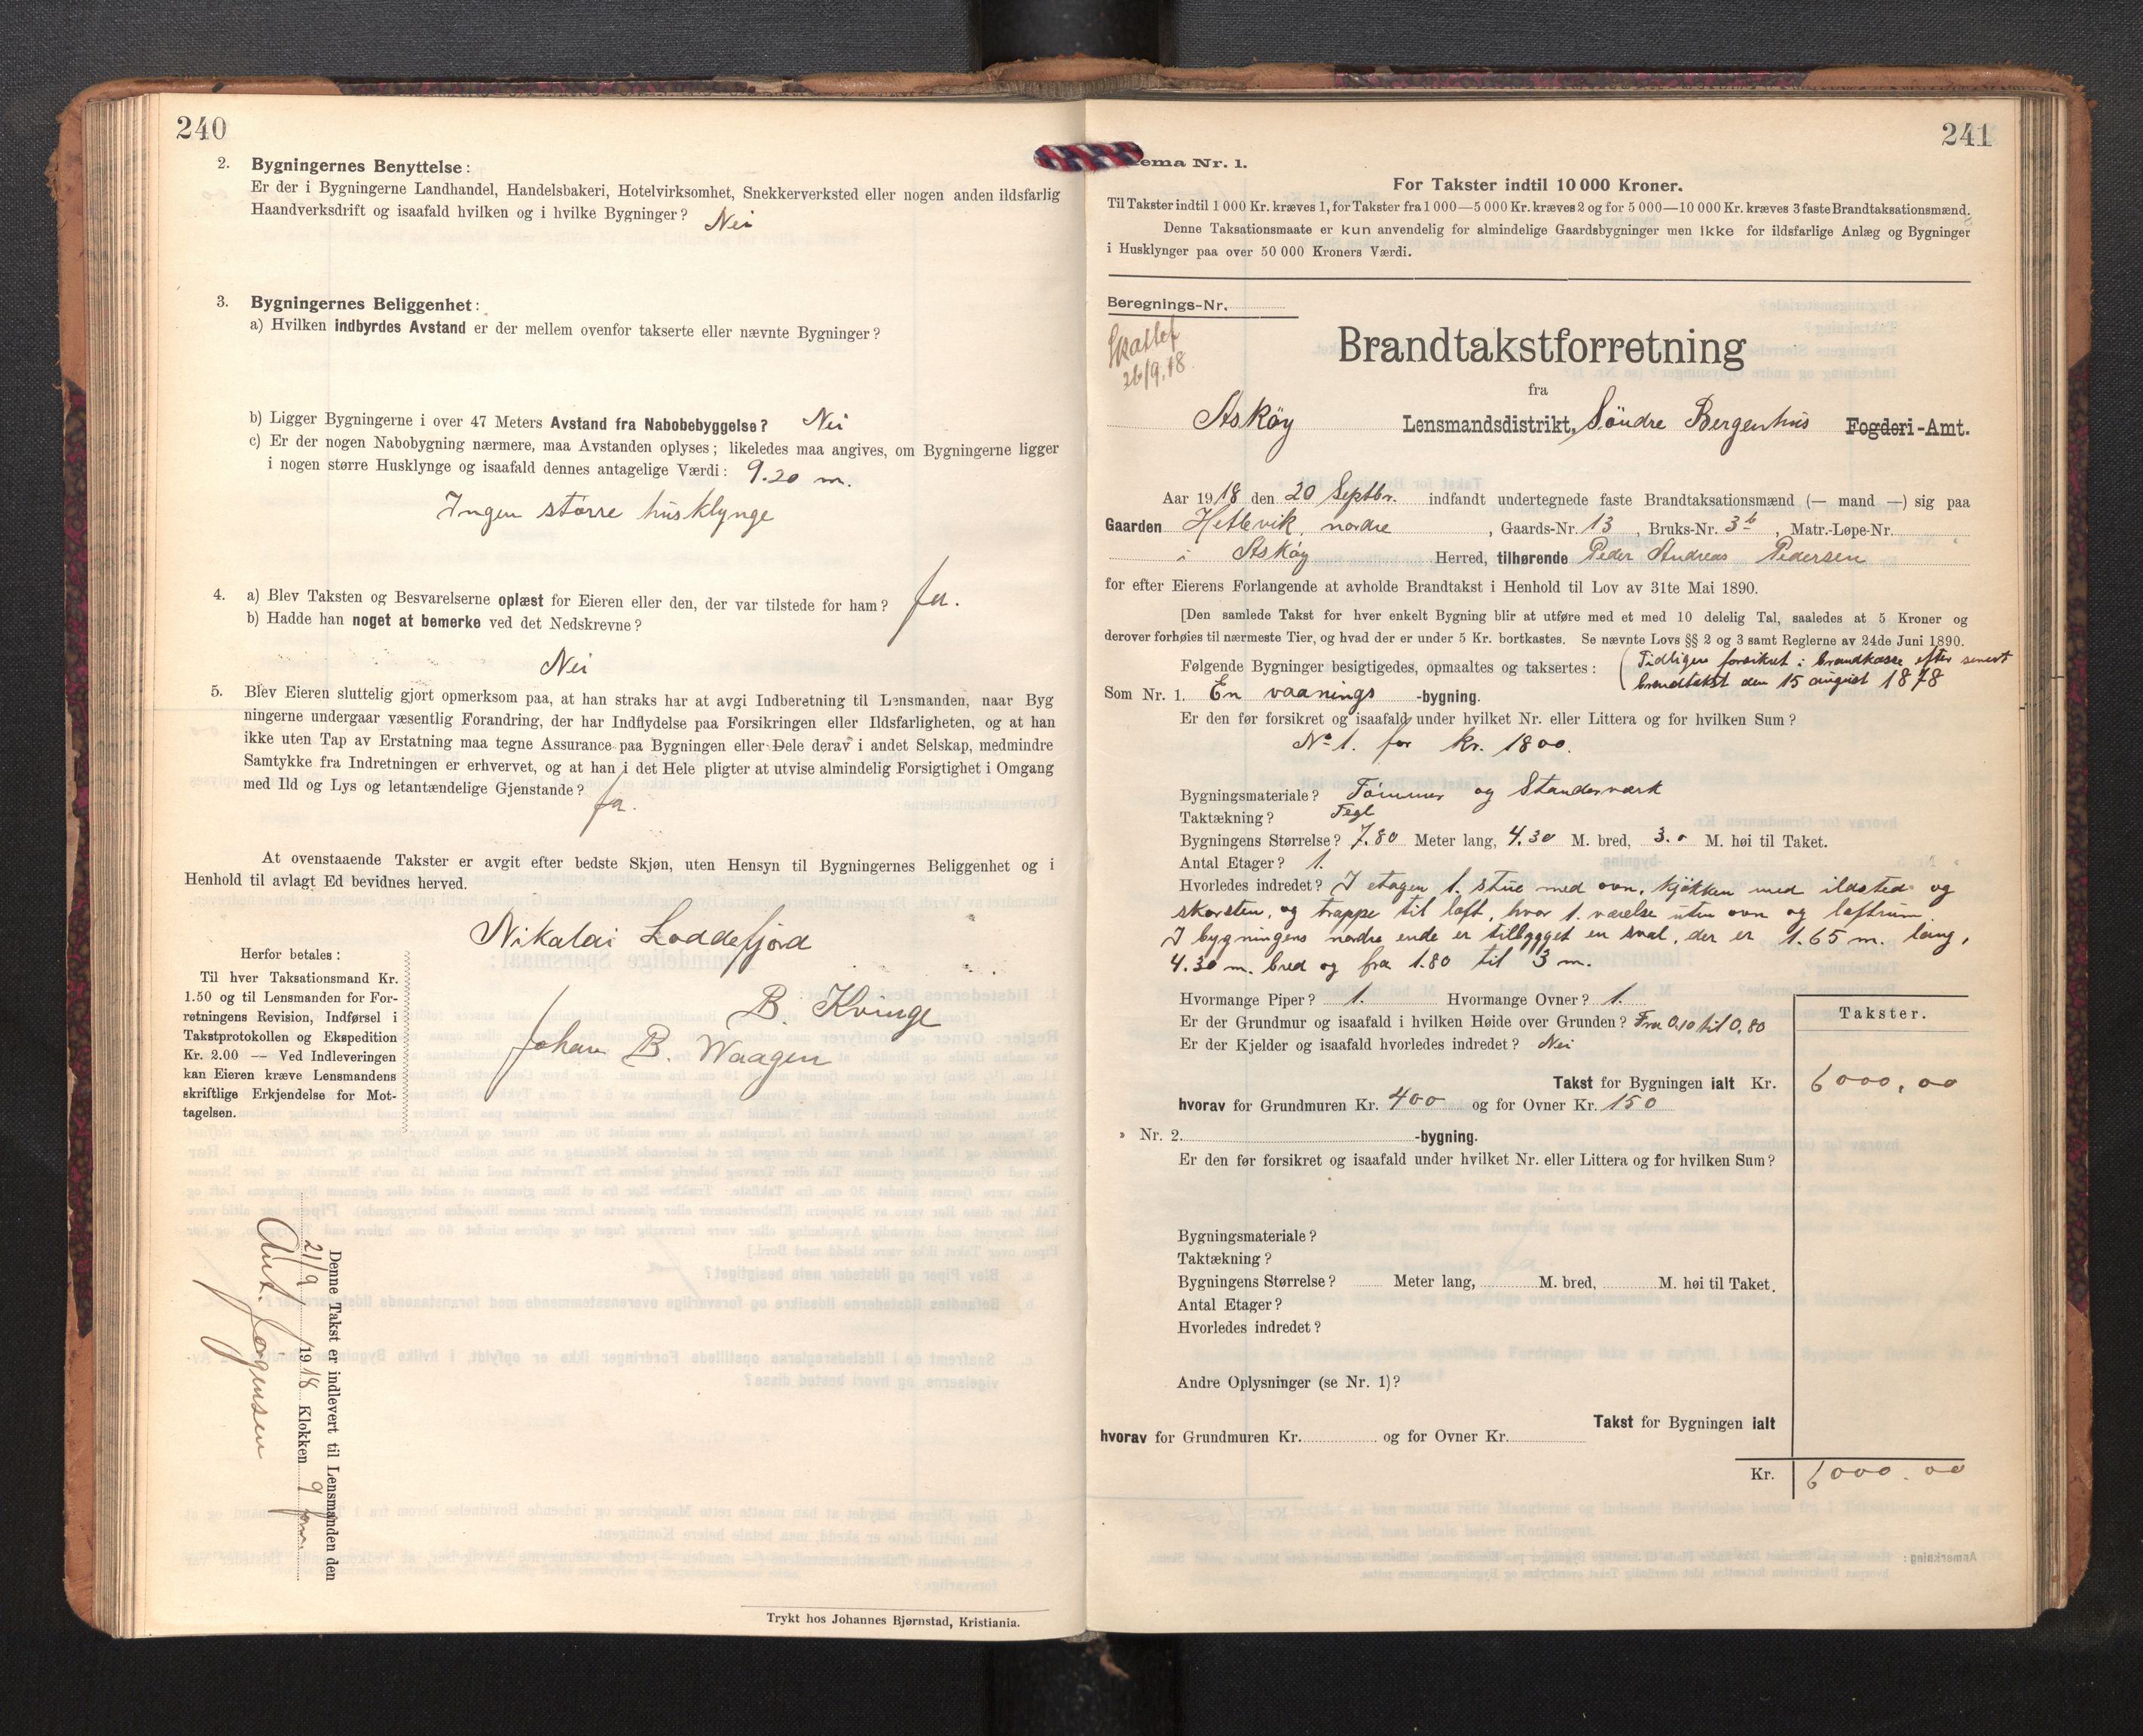 240
2. Bygningernes Benyttelse:
Er der i Bygningerne Landhandel, Handelsbakeri, Hotelvirksomhet, Snekkerverksted eller nogen anden ildsfarlig
Haandverksdrift og isaafald hvilken og i hvilke Bygninger? Nei
3. Bygningernes Beliggenhet:
a) Hvilken indbyrdes Avstand er der mellem ovenfor takserte eller nævnte Bygninger?
b) Ligger Bygningerne i over 47 Meters Avstand fra Nabobebyggelse? Nei
c) Er der nogen Nabobygning nærmere, maa Avstanden oplyses; likeledes maa angives, om Bygningerne ligger
i nogen større Husklynge og isaafald dennes antagelige Værdi: 9.20 m.
Ingen större husklynge
4. a) Blev Taksten og Besvarelserne oplæst for Eieren eller den, der var tilstede for ham? Ja.
b) Hadde han noget at bemerke ved det Nedskrevne?
Nei
5. Blev Eieren sluttelig gjort opmerksom paa, at han straks har at avgi Indberetning til Lensmanden, naar Byg
ningerne undergaar væsentlig Forandring, der har Indflydelse paa Forsikringen eller Ildsfarligheten, og at han
ikke uten Tap av Erstatning maa tegne Assurance paa Bygningen eller Dele derav i andet Selskap, medmindre
Samtykke fra Indretningen er erhvervet, og at han i det Hele pligter at utvise almindelig Forsigtighet i Omgang
med Ild og Lys og letantændelige Gjenstande? Ja.
At ovenstaaende Takster er avgit efter bedste Skjøn, uten Hensyn til Bygningernes Beliggenhet og i
Henhold til avlagt Ed bevidnes herved.
Nikolai Loddefjord
B. Kvinge
Johan B. Waagen
Herfor betales:
Til hver Taksationsmand Kr.
1.50 og til Lensmanden for For-
retningens Revision, Indførsel i
Takstprotokollen og Ekspedition
Kr. 2.00 — Ved Indleveringen
kan Eieren kræve Lensmandens
skriftlige Erkjendelse for Mot-
tagelsen.
Denne Takst er indlevert til Lensmanden den
21/9 1918 Klokken 9 fm.
Ant. Jørgensen
Trykt hos Johannes Bjørnstad, Kristiania.
241
ema Nr. 1.
For Takster indtil 10 000 Kroner.
Til Takster indtil 1 000 Kr. kræves 1, for Takster fra 1 000—5 000 Kr. kræves 2 og for 5 000—10 000 Kr. kræves 3 faste Brandtaksationsmænd.
Denne Taksationsmaate er kun anvendelig for almindelige Gaardsbygninger men ikke for ildsfarlige Anlæg og Bygninger
i Husklynger paa over 50 000 Kroners Værdi.
Beregnings-Nr.
26/9.18.
Brandtakstforretning
fra
Asköy Lensmandsdistrikt, Söndre Bergenhus Fogderi-Amt.
Aar 1918 den 20 Septbr. indfandt undertegnede faste Brandtaksationsmænd (— mand —) sig paa
Gaarden Hetlevik, nordre, Gaards-Nr. 13, Bruks-Nr. 3 b, Matr.-Løpe-Nr.
i Asköy Herred, tilhørende Peder Andreas Pedersen
for efter Eierens Forlangende at avholde Brandtakst i Henhold til Lov av 31te Mai 1890.
[Den samlede Takst for hver enkelt Bygning blir at utføre med et med 10 delelig Tal, saaledes at 5 Kroner og
derover forhøies til nærmeste Tier, og hvad der er under 5 Kr. bortkastes. Se nævnte Lovs §§ 2 og 3 samt Reglerne av 24de Juni 1890.
Følgende Bygninger besigtigedes, opmaaltes og taksertes: (Tidligere forsikret i brandkasse efter senest
brandtakst den 15 august 1878
Som Nr. 1. En vaanings -bygning.
Er den før forsikret og isaafald under hvilket Nr. eller Littera og for hvilken Sum?
No 1. for kr. 1800.
Bygningsmateriale? Tömmer og Standerværk
Taktækning? Tegl
Bygningens Størrelse? 7.80 Meter lang, 4.30 M. bred, 3.0 M. høi til Taket.
Antal Etager? 1.
Hvorledes indredet? I etagen 1. stue med ovn, kjökken med ildsted og
skorsten, og trappe til loft, hvor 1. værelse uten ovn og loftrum.
I bygningens nordre ende er tilbygget en sval, der er 1.65 m. lang,
4.30 m. bred og fra 1.80 til 3 m.
Hvormange Piper? 1. Hvormange Ovner? 1.
Er der Grundmur og isaafald i hvilken Høide over Grunden? Fra 0,10 til 0,80
Er der Kjelder og isaafald hvorledes indredet? Nei
Takster.
Takst for Bygningen ialt Kr. 6000,00
hvorav for Grundmuren Kr. 400 og for Ovner Kr. 150
» Nr. 2. -bygning.
Er den før forsikret og isaafald under hvilket Nr. eller Littera og for hvilken Sum?
Bygningsmateriale?
Taktækning?
Bygningens Størrelse? Meter lang, M. bred, M. høi til Taket.
Antal Etager?
Hvorledes indredet?
Andre Oplysninger (se Nr. 1)?
Takst for Bygningen ialt
hvorav for Grundmuren Kr. og for Ovner Kr.
Kr. 6000.00